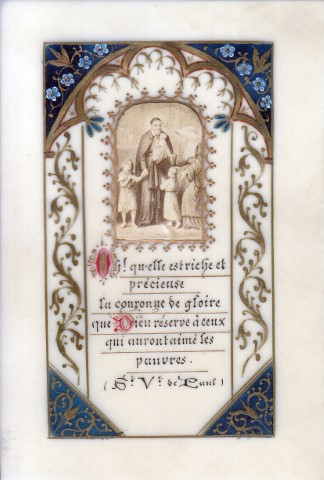 Oh! qu'elle est riche et
précieuse
la couronne de gloire
que Dieu réserve à ceux
qui auront aimé les
pauvres.
(St Vt de Paul)